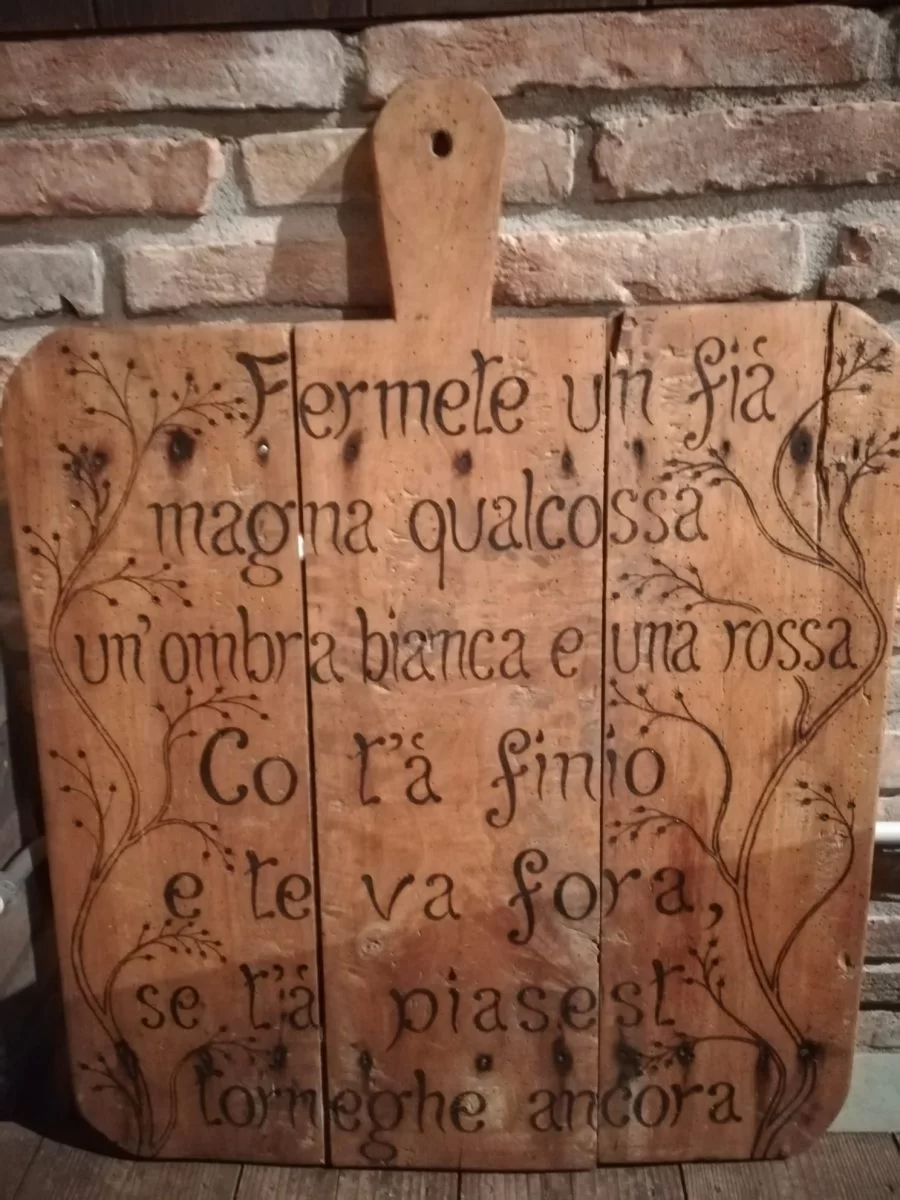 Fermete un fià
magna qualcossa
un'ombra bianca e una rossa
Co t'à finio
e te va fora,
se t'à piasest
torneghe ancora